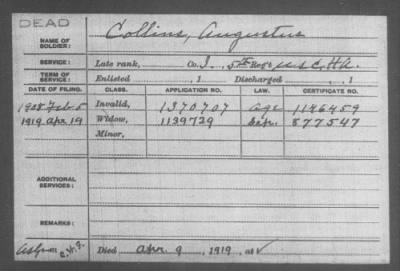 DEAD
NAME OF SOLDIER: Collins, Augustus
SERVICE: Late rank, Co. I, 5th Reg't U.S.C.H.A.
TERM OF SERVICE: Enlisted , 1 Discharged , 1
DATE OF FILING. CLASS. APPLICATION NO. LAW. CERTIFICATE NO.
1908 Feb 5 Invalid, 1370707 Age 1146459
1919 Apr 19 Widow, 1139729 877547
Minor,
ADDITIONAL SERVICES:
REMARKS:
Died Apr. 9, 1919, at ✓